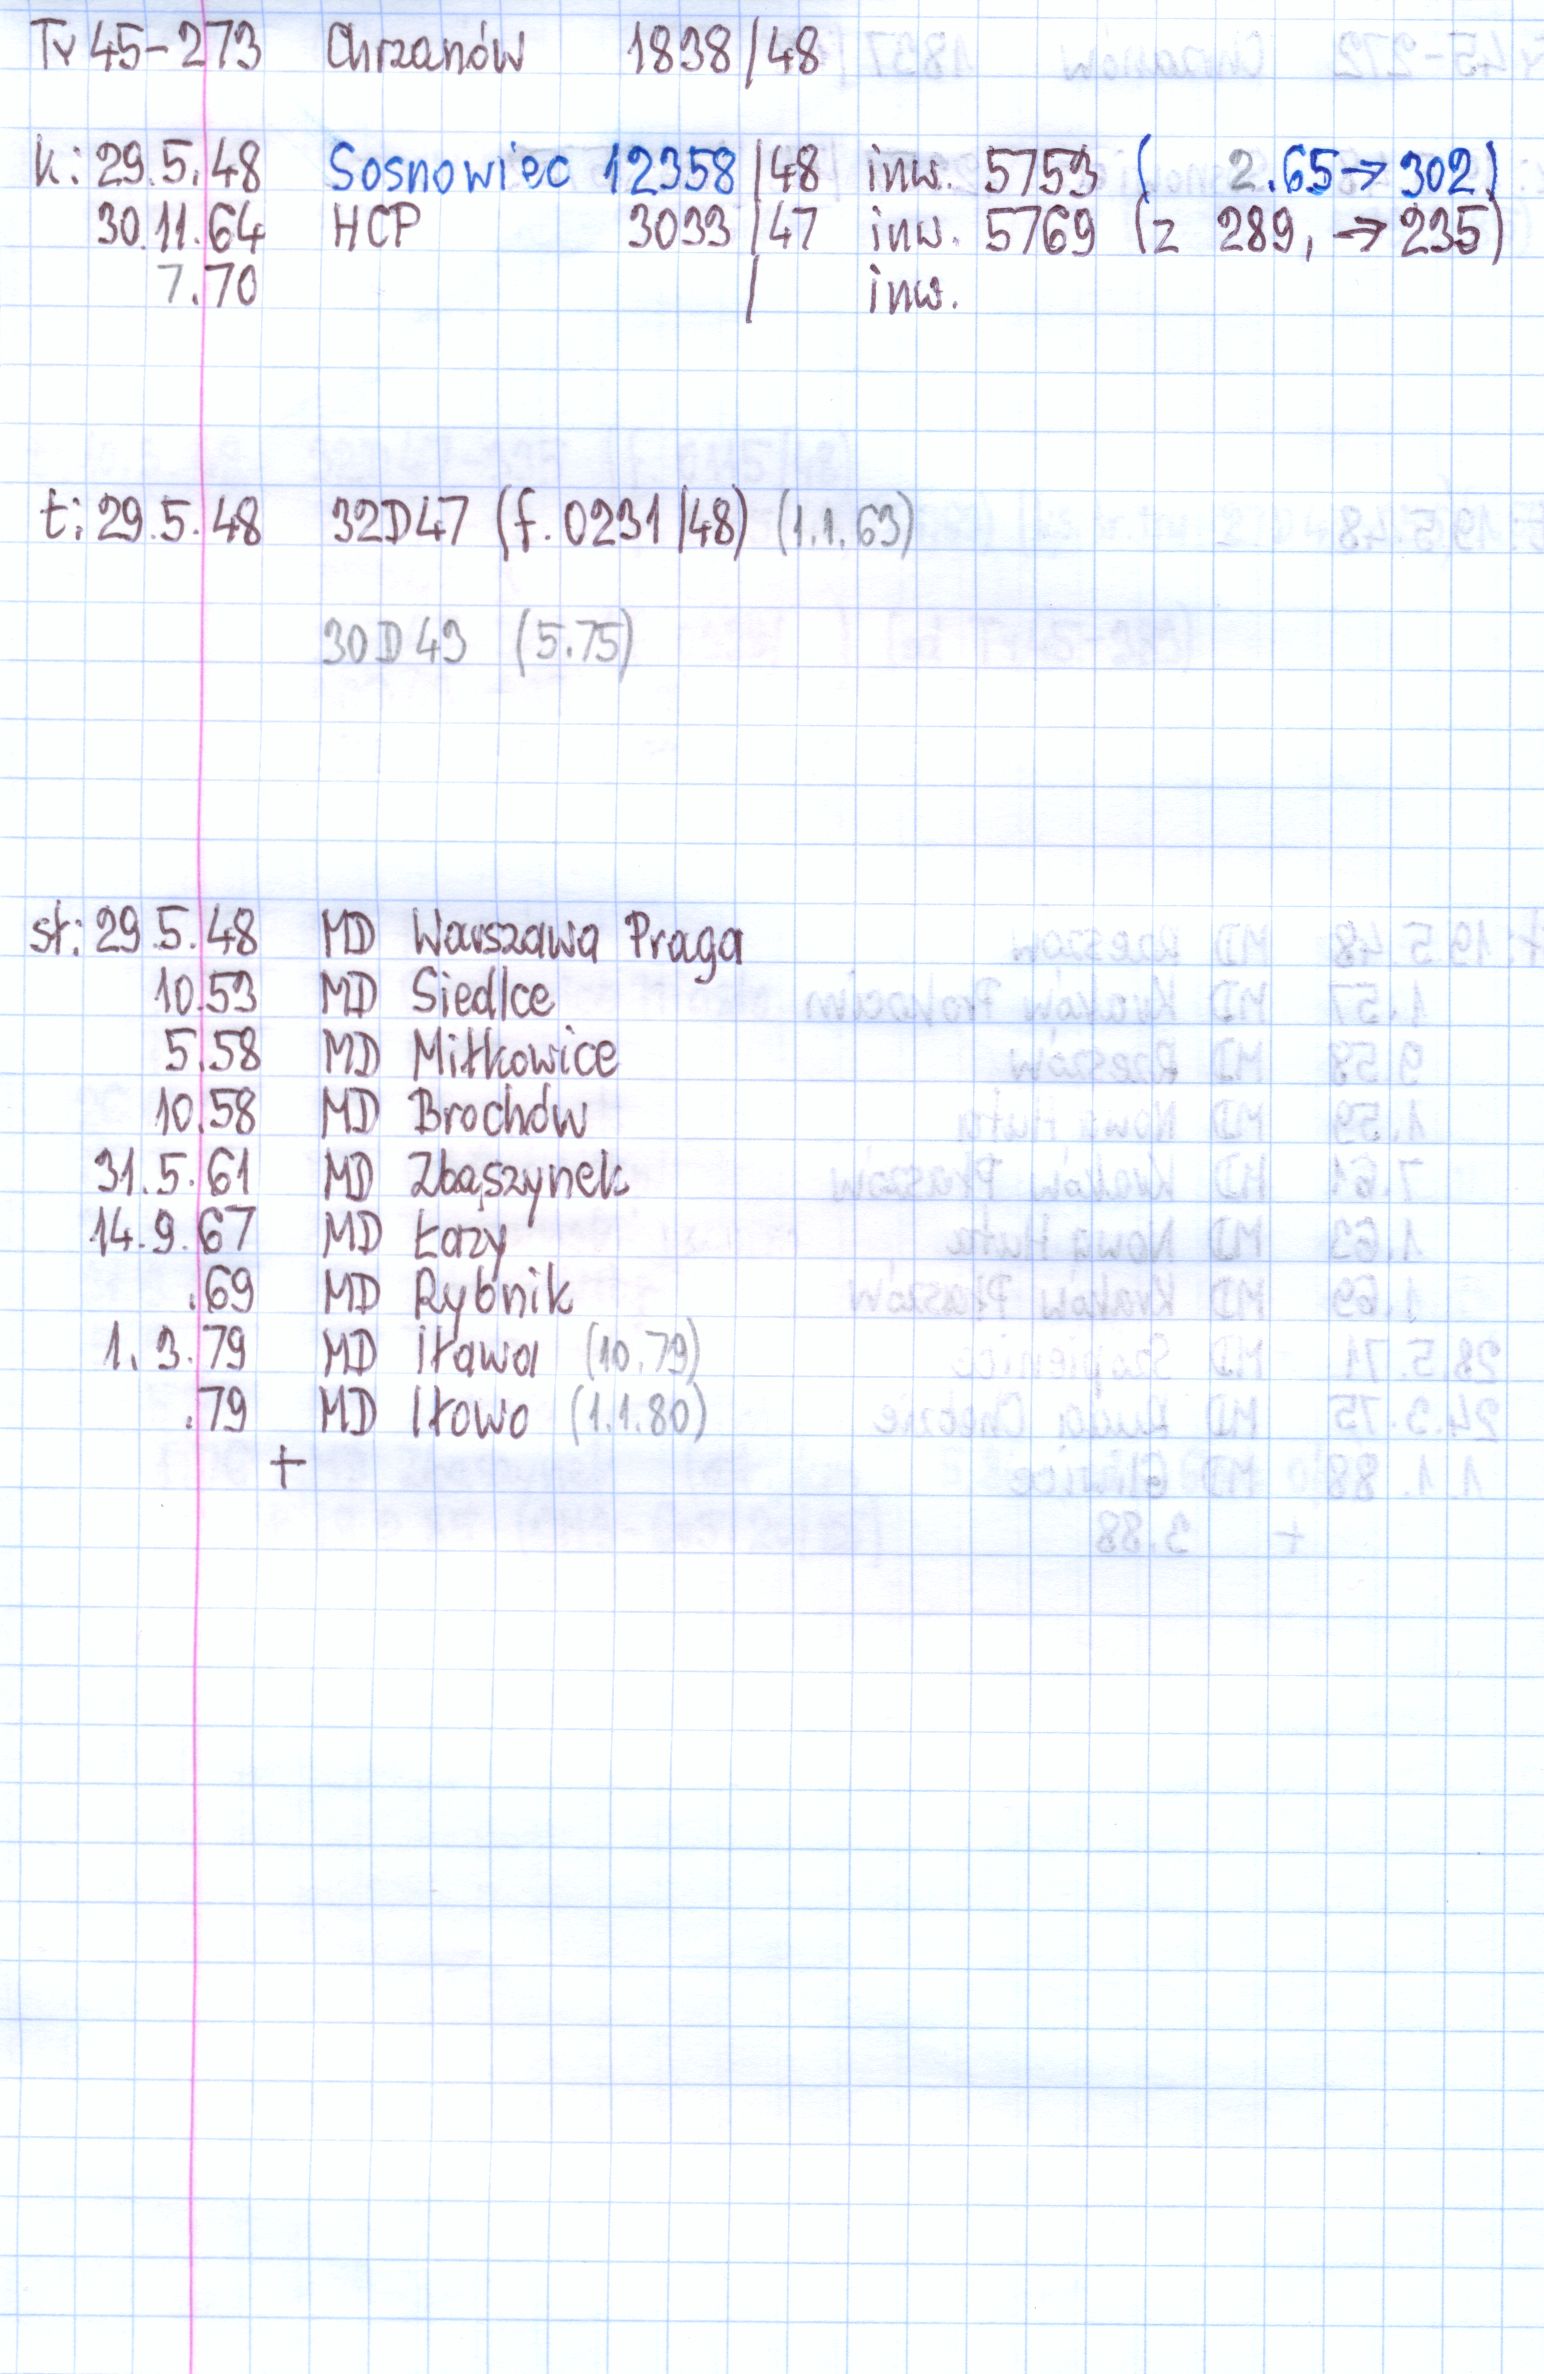 Ty 45-273 Chrzanów 1838/48
k: 29.5.48 Sosnowiec 12358/48 inw. 5753 ( 2.65→302)
30.11.64 HCP 3033/47 inw. 5769 (z 289, →235)
7.70 / inw.
t: 29.5.48 32D47 (f. 0231/48) (1.1.63)
30D43 (5.75)
st: 29.5.48 MD Warszawa Praga
10.53 MD Siedlce
5.58 MD Miłkowice
10.58 MD Brochów
31.5.61 MD Zbąszynek
14.9.67 MD Łazy
.69 MD Rybnik
1.3.79 MD Iława (10.79)
.79 MD Iłowo (1.1.80)
+